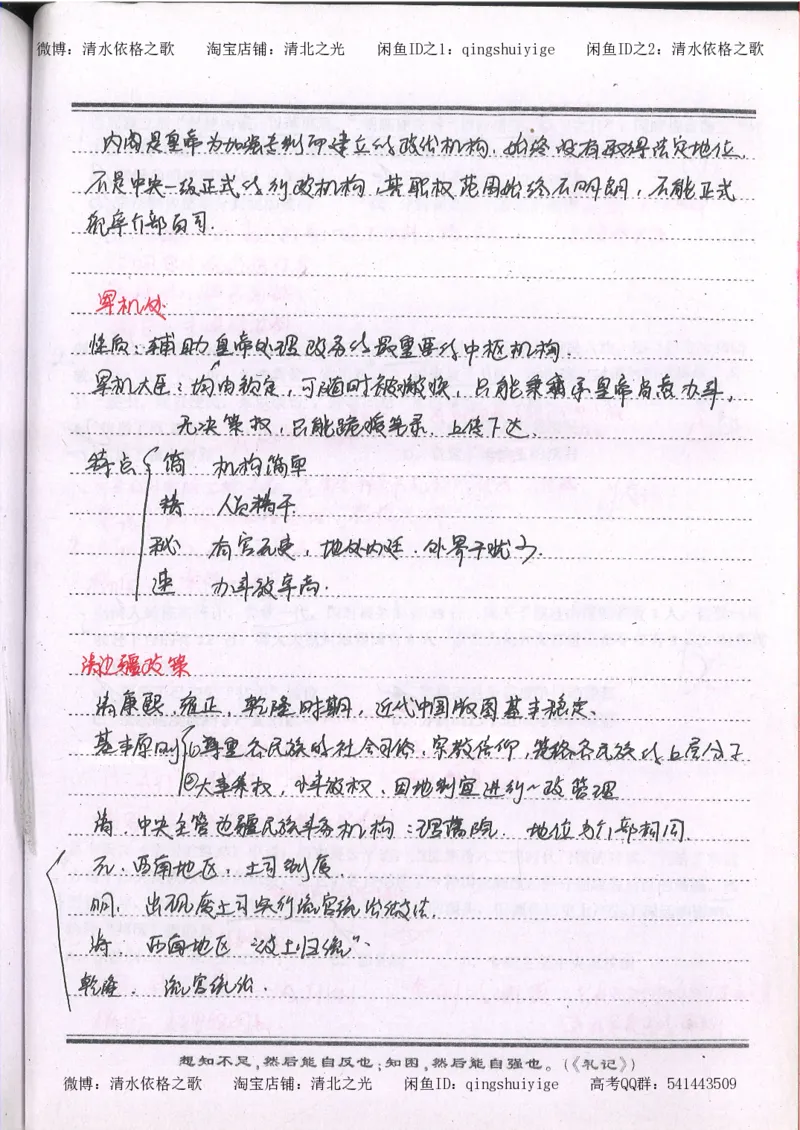 微博：清水依格之歌　　淘宝店铺：清北之光　　闲鱼ID之1：qingshuiyige　　闲鱼ID之2：清水依格之歌
内阁是皇帝为加强专制而建立的政治机构，始终没有取得法定地位，
不是中央一级正式的行政机构，其职权范围始终不明朗，不能正式
统率六部百司．
军机处
性质：辅助皇帝处理政务的最重要的中枢机构．
军机大臣：均由钦定，可随时被撤换，只能秉承皇帝旨意办事，
无决策权，只能跪受笔录，上传下达．
特点 简 机构简单
精 人员精干
秘 有官无吏，地处内廷．外界干扰少．
速 办事效率高．
清边疆政策
清康熙．雍正，乾隆时期，近代中国版图基本稳定．
基本原则 ①尊重各民族的社会习俗，宗教信仰，笼络各民族的上层分子
②大事集权，小事放权、因地制宜进行~政管理
清．中央主管边疆民族事务机构：理藩院 地位与六部相同．
元：西南地区，土司制度．
明． 出现废土司实行流官统治做法．
清． 西南地区"改土归流"．
乾隆． 流官统治．
想知不足，然后能自反也；知困，然后能自强也。(《礼记》)
微博：清水依格之歌　　淘宝店铺：清北之光　　闲鱼ID：qingshuiyige　　高考QQ群：541443509